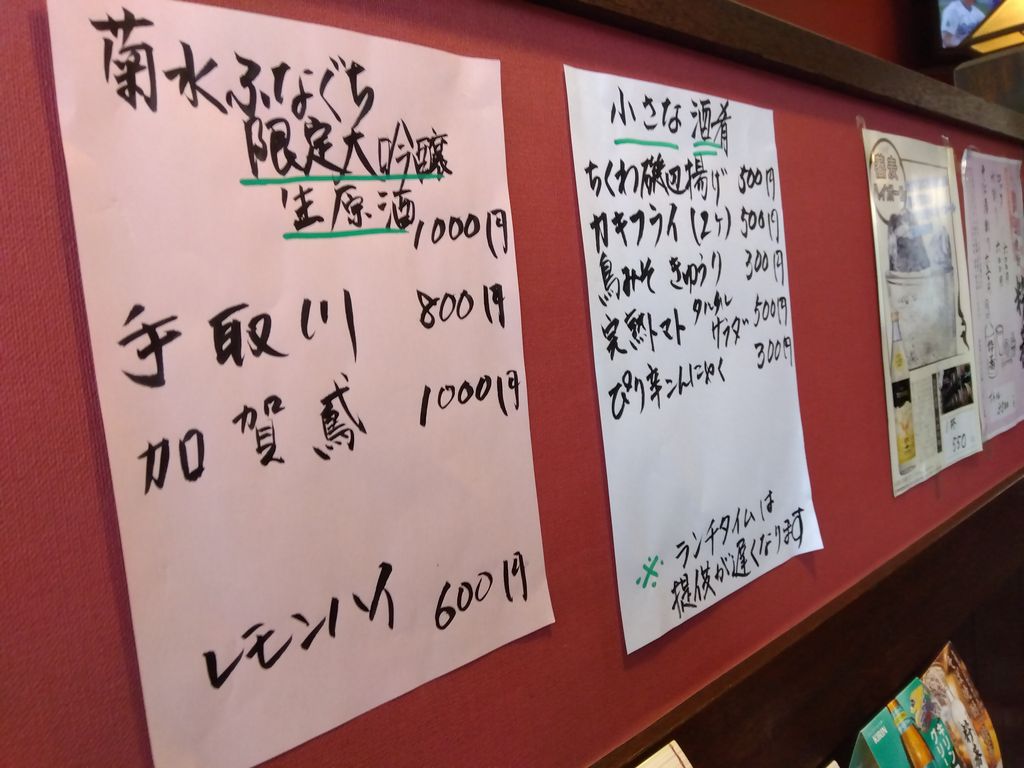 菊水ふなぐち
限定大吟醸
生原酒
1000円
手取川 800円
加賀鳶 1000円
レモンハイ 600円
小さな酒肴
ちくわ磯辺揚げ 500円
カキフライ(2ヶ) 500円
鳥みそきゅうり 300円
完熟トマト タルタルサラダ 500円
ぴり辛こんにゃく 300円
※ ランチタイムは
提供が遅くなります
1杯
550
KIRIN